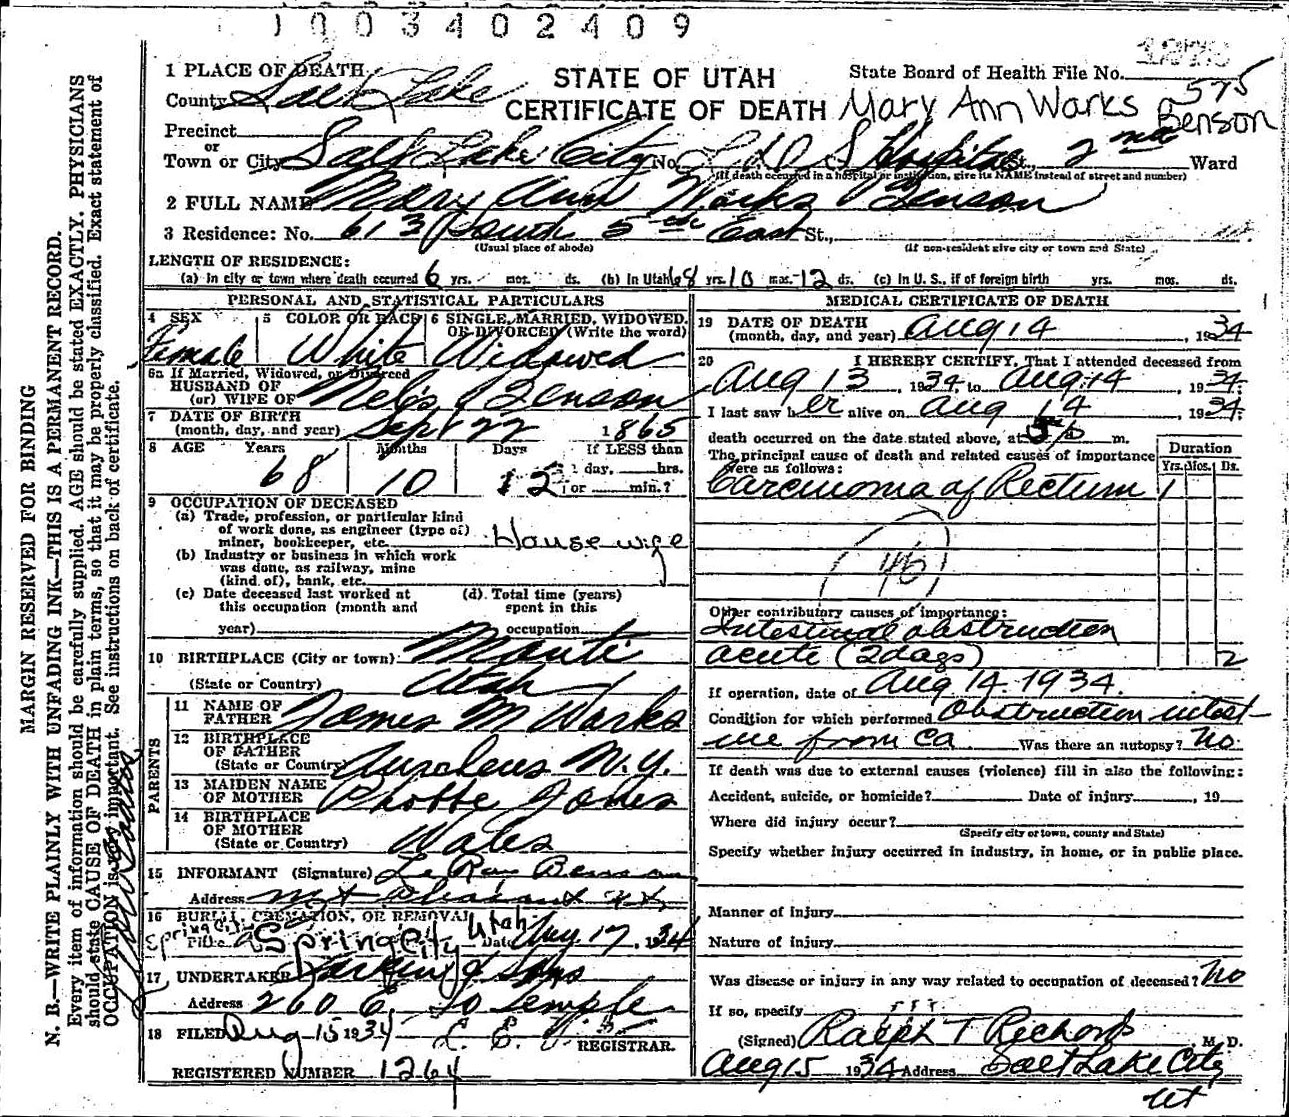 1003402409
1 PLACE OF DEATH
STATE OF UTAH
State Board of Health File No.
575
County Salt Lake
CERTIFICATE OF DEATH
Mary Ann Warks Benson
Precinct
or
Town or City Salt Lake City No. L D S Hospital St., 2nd Ward
(If death occurred in a hospital or institution, give its NAME instead of street and number)
2 FULL NAME Mary Ann Warks Benson
3 Residence: No. 613 South 5th East St.,
(Usual place of abode) (If non-resident give city or town and State)
LENGTH OF RESIDENCE:
(a) In city or town where death occurred 6 yrs. mos. ds. (b) In Utah 68 yrs. 10 mos. 12 ds. (c) In U. S., if of foreign birth yrs. mos. ds.
PERSONAL AND STATISTICAL PARTICULARS
4 SEX
5 COLOR OR RACE
6 SINGLE, MARRIED, WIDOWED, OR DIVORCED (Write the word)
Female White Widowed
6a If Married, Widowed, or Divorced
HUSBAND OF
(or) WIFE OF Benson
7 DATE OF BIRTH
(month, day, and year) Sept 22 1865
8 AGE Years Months Days If LESS than
68 10 12 1 day, hrs.
or min.?
9 OCCUPATION OF DECEASED
(a) Trade, profession, or particular kind
of work done, as engineer (type of)
miner, bookkeeper, etc. House wife
(b) Industry or business in which work
was done, as railway, mine
(kind of), bank, etc.
(c) Date deceased last worked at
this occupation (month and
year)
(d) Total time (years)
spent in this
occupation
10 BIRTHPLACE (City or town) Manti
(State or Country) Utah
PARENTS
11 NAME OF
FATHER James M Warks
12 BIRTHPLACE
OF FATHER
(State or Country) N.Y.
13 MAIDEN NAME
OF MOTHER Phobbe Jones
14 BIRTHPLACE
OF MOTHER
(State or Country) Wales
15 INFORMANT (Signature) Le Ray Benson
Address Mt Pleasant Ut
16 BURIAL, CREMATION, OR REMOVAL
Place Spring City Utah Date Aug 17, 1934
17 UNDERTAKER Larkin & Sons
Address 260 E. So Temple
18 FILED Aug 15 1934
REGISTRAR.
REGISTERED NUMBER 1264
MEDICAL CERTIFICATE OF DEATH
19 DATE OF DEATH
(month, day, and year) Aug 14, 1934
20 I HEREBY CERTIFY, That I attended deceased from
Aug 13, 1934 to Aug 14 1934.
I last saw her alive on Aug 14, 1934.
death occurred on the date stated above, at m.
The principal cause of death and related causes of importance
were as follows:
Duration
Yrs. Mos. Ds.
Carcinoma of Rectum 1
(46)
Other contributory causes of importance:
Intestinal obstruction
acute (2 days) 2
If operation, date of Aug 14. 1934.
Condition for which performed Obstruction intest-
ine from Ca Was there an autopsy? No
If death was due to external causes (violence) fill in also the following:
Accident, suicide, or homicide? Date of injury , 19
Where did injury occur?
(Specify city or town, county and State)
Specify whether injury occurred in industry, in home, or in public place.
Manner of injury
Nature of injury
Was disease or injury in any way related to occupation of deceased? No
If so, specify
(Signed) Ralph T Richards M. D.
Aug 15 1934 Address Salt Lake City
Ut
MARGIN RESERVED FOR BINDING
N. B.—WRITE PLAINLY WITH UNFADING INK—THIS IS A PERMANENT RECORD.
Every item of information should be carefully supplied. AGE should be stated EXACTLY. PHYSICIANS
should state CAUSE OF DEATH in plain terms, so that it may be properly classified. Exact statement of
OCCUPATION is very important. See instructions on back of certificate.